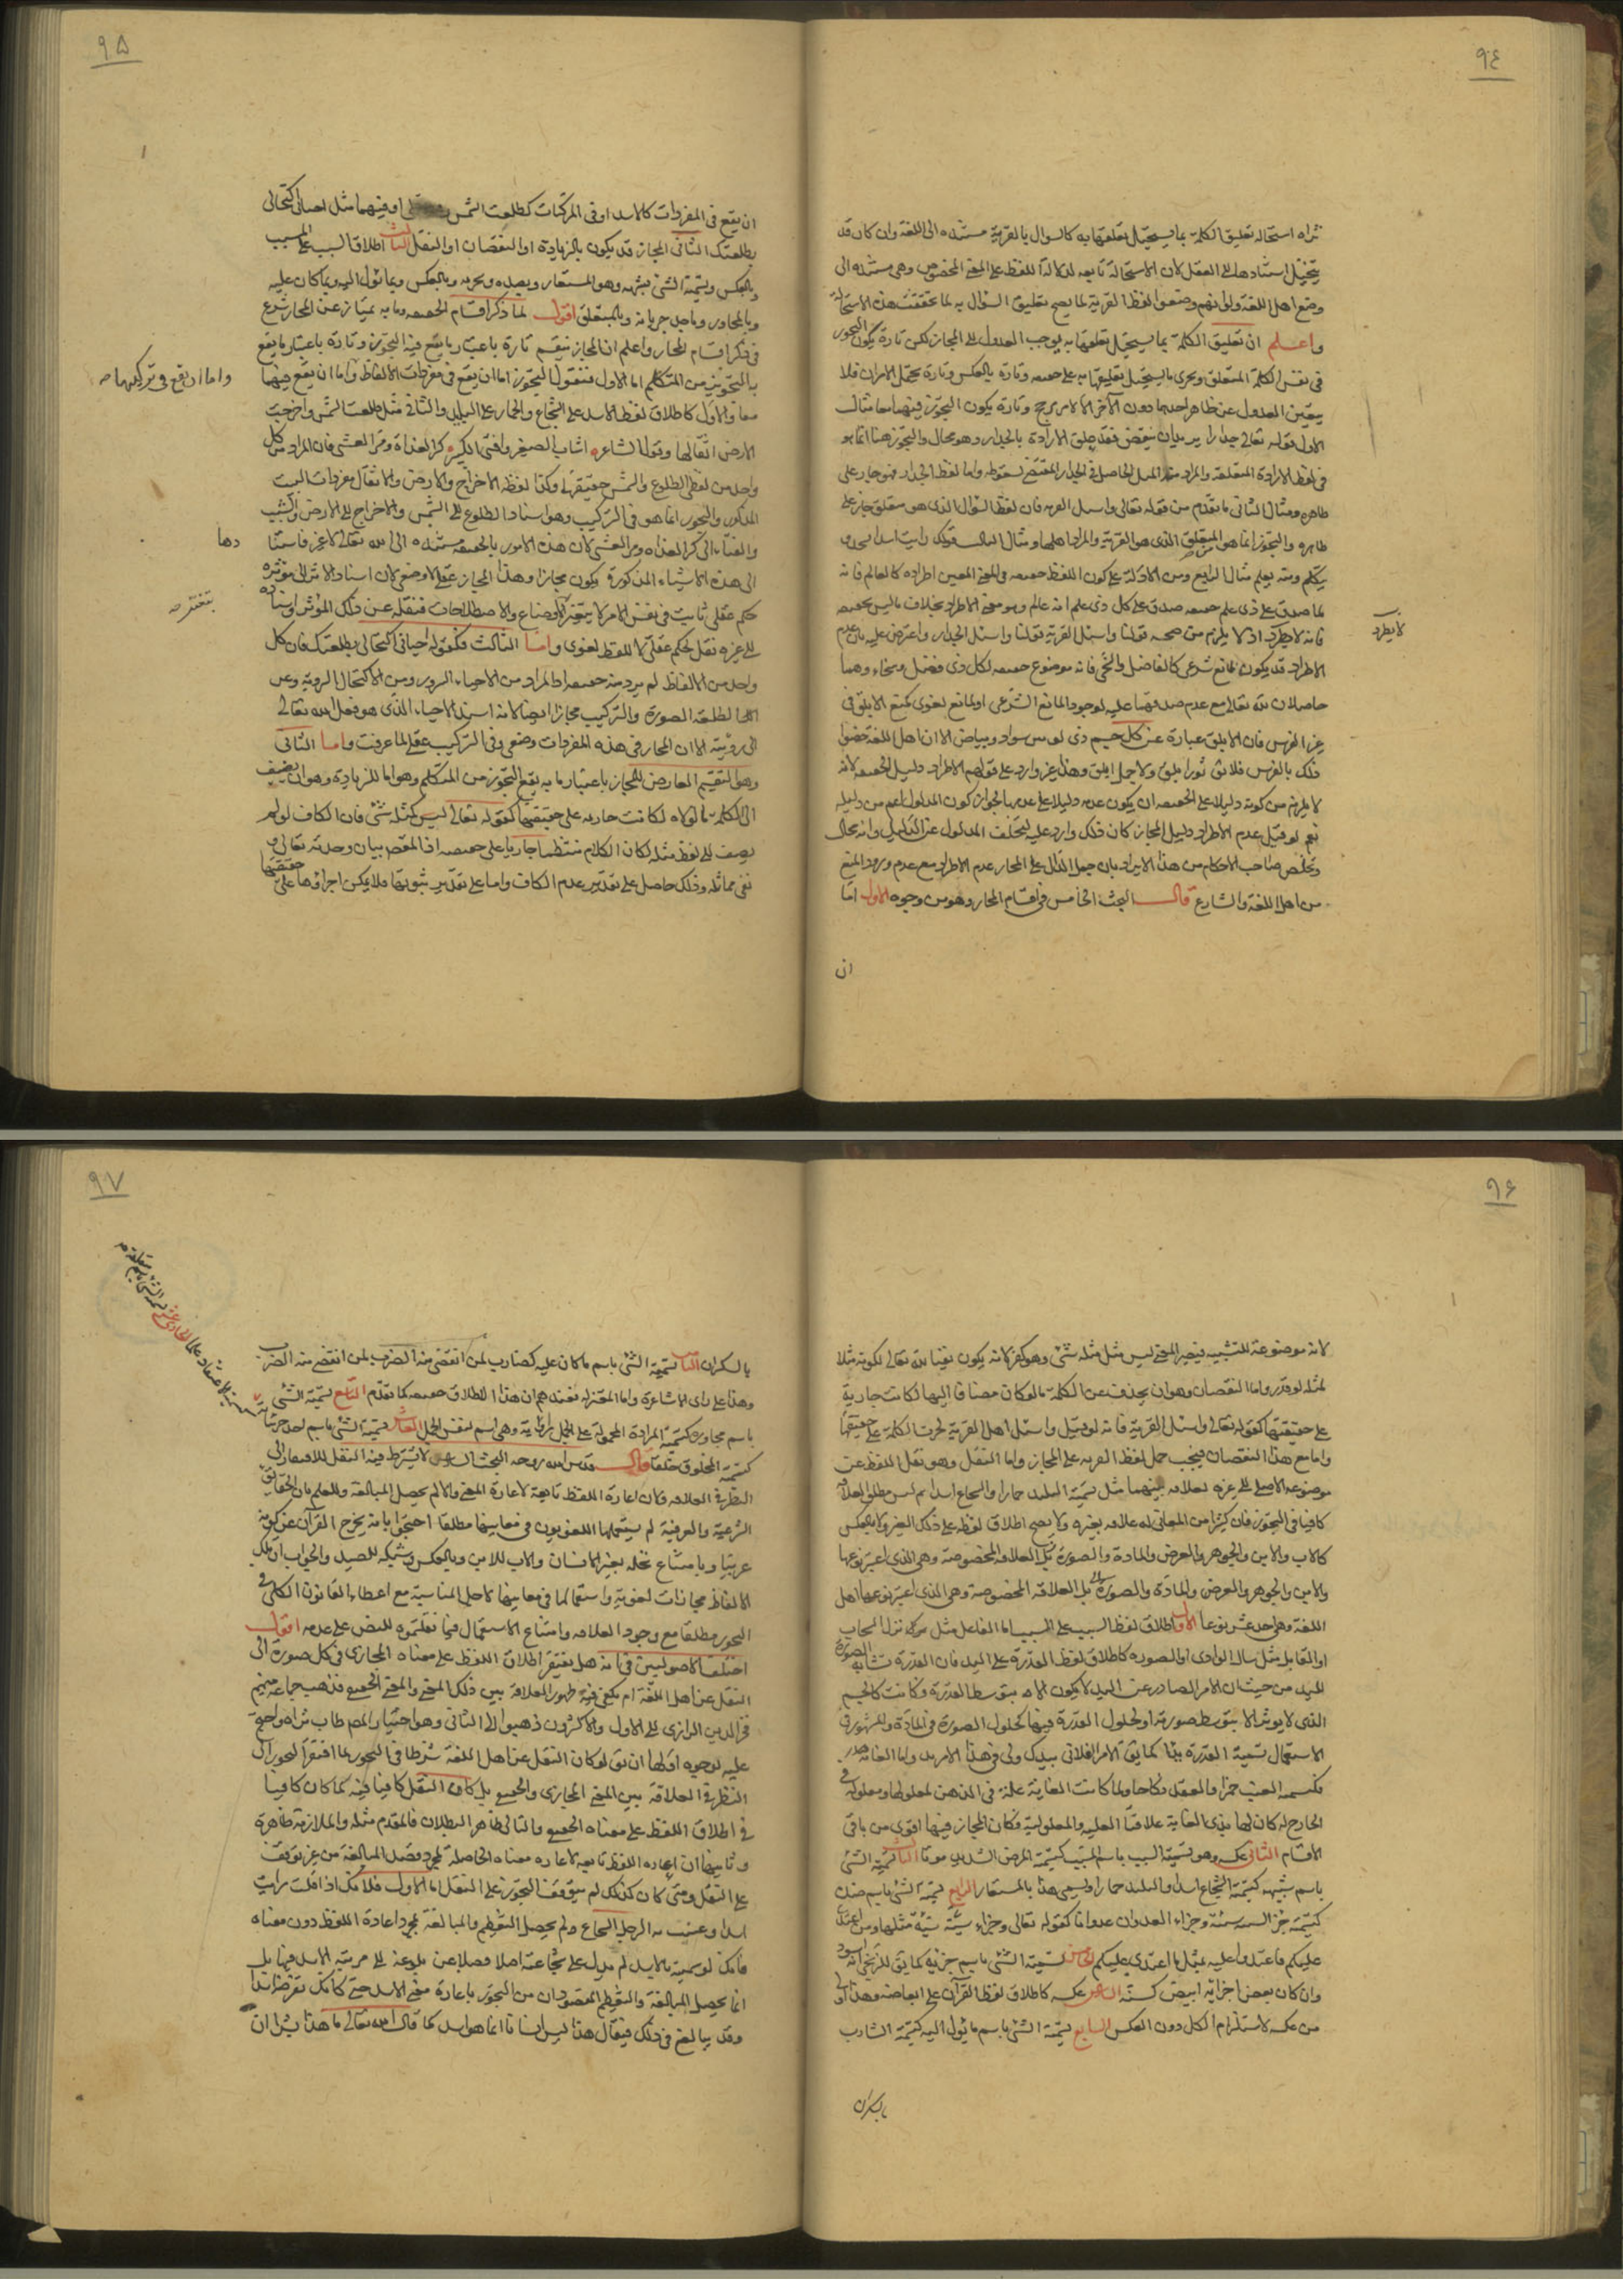 ٩٤
تراه استحالة تعليق الكلمة بما يستحيل تعلقها به كالسوال بالقرية مستنده الى اللغة وان كان قد
يتخيل استنادها الى العقل لان الاستحالة تابعه لدلالة اللفظ على المعنى المخصوص وهى مستنده الى
وضع اهل اللغة ولو انهم وضعوا لفظ القرية لما يصح تعليق السؤال به لما تحققت هذه الاستحالة
واعلم ان تعليق الكلمة بما يستحيل تعلقها به يوجب العدول الى المجاز لكن تارة يكون التجوز
في نفس الكلمة المتعلق ويجرى ما يستحيل تعليقها به على حقيقته وتارة بالعكس وتارة يحتمل الامران فلا
يتعين العدول عن ظاهر احدهما دون الآخر الا لامر مرجح وتارة يكون التجوز فيهما معا مثال
الاول قوله تعالى جدارا يريد ان ينقض فقد علق الارادة بالجدار وهو محال والتجوز هنا انما هو
في لفظ الارادة المتعلقه والمراد منه الميل الحاصل في الجدار المقتضى لسقوطه واما لفظ الجدار فهو جار على
ظاهره ومثال الثانى ما تقدم من قوله تعالى واسئل القرية فان لفظ السؤال الذى هو متعلق جار على
ظاهره والتجوز انما هو المتعلق الذى هو القرية والمراد اهلها ومثال الثالث قولك رايت اسدا
يتكلم ومنه يعلم مثال الرابع ومن الادلة على كون اللفظ حقيقه في المعنى المعين اطراده كالعالم فانه
لما صدق على ذى علم حقيقه صدق على كل ذى علم انه عالم وهو معنى الاطراد بخلاف ما ليس بحقيقه
فانه لا يطرد اذ لا يلزم من صحة قولنا واسئل القرية قولنا واسئل الجدار واعترض عليه بان عدم
الاطراد قد يكون لمانع شرعى كالفاضل والسخى فانه موضوع حقيقه لكل ذى فضل وسخاء وهما
حاصلان لله تعالى مع عدم صدقهما عليه لوجود المانع الشرعى او لمانع لغوى كمنع الابلق في
غير الفرس فان الابلق عبارة عن كل جسم ذى لونين سواد وبياض الا ان اهل اللغة خصوا
ذلك بالفرس فلا يق ثور ابلق ولا جمل ابلق وهذا غير وارد على قولهم الاطراد دليل الحقيقه لانه
لا يلزم من كونه دليلا على الحقيقه ان يكون عدمه دليلا على عدمها لجواز كون المدلول اعم من دليله
نعم لو قيل عدم الاطراد دليل المجاز كان ذلك وارد عليه لتخلف المدلول عن الدليل وانه محال
وتخلص صاحب الاحكام من هذا الايراد بان جعل الدال على المجاز عدم الاطراد مع عدم ورود المنع
من اهل اللغة والشارع قال البحث الخامس في اقسام المجاز وهو من وجوه الاول اما
ان
لا يطرد
٩٥
ان يقع في المفردات كالاسد او في المركبات كطلعت الشمس او فيهما مثل احيانى اكتحالى
بطلعتك الثانى المجاز قد يكون بالزيادة او النقصان او النقل الثالث اطلاق السبب على المسبب
وبالعكس وتسمية الشئ بشبهه وهو المستعار وبضده وبجزئه وبالعكس وبما يؤل اليه وبما كان عليه
وبالمجاور وباحد جزيانه وبالمتعلق اقول لما ذكر اقسام الحقيقه وما به يمتاز عن المجاز شرع
في ذكر اقسام المجاز واعلم ان المجاز ينقسم تارة باعتبار ما يقع فيه التجوز وتارة باعتبار ما يقع
به التجوز من المتكلم اما الاول فنقول التجوز اما ان يقع في مفردات الالفاظ واما ان يقع فيهما
معا والاول كاطلاق لفظ الاسد على الشجاع والحمار على البليد والثانى مثل طلعت الشمس واخرجت
الارض اثقالها وقول الشاعر اشاب الصغير وافنى الكبير كر الغداة ومر العشى فان المراد من كل
واحد من لفظى الطلوع والشمس حقيقتها وكذا لفظة الاخراج والارض والاثقال ومفردات البيت
المذكور والتجوز انما هو في التركيب وهو اسناد الطلوع الى الشمس والاخراج الى الارض والشيب
والفناء الى كر الغداه ومر العشى لان هذه الامور بالحقيقه مستنده الى الله تعالى لا غير فاسنا
الى هذه الاشياء المذكورة يكون مجازا وهذا المجاز عقلى لا وضعى لان اسناد الاثر الى مؤثره
حكم عقلى ثابت في نفس الامر لا بتغير الاوضاع والاصطلاحات فنقله عن ذلك المؤثر واسناده
الى غيره نقل لحكم عقلى لا للفظ لغوى واما الثالث فكقوله احيانى اكتحالى بطلعتك فان كل
واحد من الالفاظ لم يرد منه حقيقه اذ المراد من الاحياء السرور ومن الاكتحال الروية ومن
الطلعة الصورة والتركيب مجازا ايضا لانه اسند الاحياء الذى هو فعل الله تعالى
الى رؤيته الا ان المجاز في هذه المفردات وضعى وفى التركيب عقلى لما عرفت واما الثانى
وهو التقسيم العارض للمجاز باعتبار ما به يقع التجوز من المتكلم وهو اما للزيادة وهو ان يضيف
الى الكلمة ما لولاه لكانت جاريه على حقيقتها كقوله تعالى ليس كمثله شئ فان الكاف لو لم
يضف الى لفظ مثله لكان الكلام منتظما جاريا على حقيقته اذ القصد بيان وحدته تعالى و
نفى مماثله وذلك حاصل على تقدير عدم الكاف واما على تقدير ثبوتها فلا يمكن اجراؤها على حقيقتها
واما ان يقع في تركيبها صح
دها
بتغير صح
٩٦
لانه موضوعة للتشبيه فيصير المعنى ليس مثل مثله شئ وهو كفر لانه يكون نفيا لله تعالى لكونه مثلا
لمثله لو قدر واما النقصان وهو ان يحذف عن الكلمة ما لو كان مضافا اليها لكانت جارية
على حقيقتها كقوله تعالى واسئل القرية فانه لو قيل واسئل اهل القرية لجرت الكلمة على حقيقتها
واما مع هذا النقصان فيجب حمل لفظ القريه على المجاز واما النقل وهو نقل اللفظ عن
موضوعه الاصلى الى غيره لعلاقه بينهما مثل تسمية البليد حمارا والشجاع اسدا ثم ليس مطلق العلاقة
كافيا في التجوز فان كثيرا من المعانى له علاقه بغيره ولا يصح اطلاق لفظه على ذلك الغير ولا بالعكس
كالاب والابن والجوهر والعرض والمادة والصورة بل العلاقه المخصوصة وهى الذى اعتبر نوعها
والابن والجوهر والعرض والمادة والصورة بل العلاقه المخصوصة وهى الذى اعتبر نوعها اهل
اللغة وهى احد عشر نوعا الاول اطلاق لفظ السبب على المسبب اما الفاعل مثل قولك نزل السحاب
او القابل مثل سال الوادى او الصوره كاطلاق لفظ القدرة على اليد فان القدرة تشابه الصورة
لليد من حيث ان الامر الصادر عن اليد لا يكون الا بتوسط القدرة وكانت كالجسم
الذى لا يؤثر الا بتوسط صورته او لحلول القدرة فيها كحلول الصورة في المادة والمشهور في
الاستعمال تسمية القدرة يدا كما يق الامر الفلانى بيدك ولى في هذا الامر يد واما الغائيه
فكتسميه العنب خمرا والعقد نكاحا ولما كانت الغاية علة في الذهن لمعلولها ومعلوله في
الخارج له كان لها بذى الغاية علاقتا العليه والمعلولية فكان المجاز فيها اقوى من باقى
الاقسام الثانى عكسه وهو تسمية السبب باسم المسبب كتسمية المرض الشديد موتا الثالث تسمية الشئ
باسم شبهه كتسمية الشجاع اسدا والبليد حمارا ويسمى هذا بالمستعار الرابع تسمية الشئ باسم ضده
كتسمية جزاء السيئه سيئة وجزاء العدوان عدوانا كقوله تعالى وجزاء سيئة سيئة مثلها ومن اعتدى
عليكم فاعتدوا عليه بمثل ما اعتدى عليكم الخامس تسمية الشئ باسم جزئه كما يق للزنجى انه اسود
وان كان بعض اجزائه ابيض كسنه السادس عكسه كاطلاق لفظ القرآن على ابعاضه وهذا اولى
من عكسه لاستلزام الكل دون العكس السابع تسمية الشئ باسم ما يؤل اليه كتسمية الشارب
بالسكران
٩٧
بالسكران الثامن تسمية الشئ باسم ما كان عليه كضارب لمن انقضى منه الضرب لمن انقضى منه الضرب
وهذا على راى الاشاعرة واما المعتزله فعندهم ان هذا الاطلاق حقيقه كما تقدم التاسع تسمية الشئ
باسم مجاوره كتسمية المزادة المحمولة على الجمل راوية وهى اسم لنفس الجمل العاشر تسمية الشئ باسم احد جزئياته
كتسمية المخلوق خلقا قال قدس الله روحه البحث السادس لا يشترط فيه النقل للافتقار الى
النظر في العلاقه ولان اعارة اللفظ تابعة لاعارة المعنى والا لم يحصل المبالغة وللعلم بان الحقائق
الشرعية والعرفية لم يستعملها اللغويون في معانيها مطلقا احتجوا بانه يخرج القرآن عن كونه
عربيا وبامتناع نخله لغير الانسان والاب للابن وبالعكس وشبكه للصيد والجواب ان تلك
الالفاظ مجازات لغوية واستعمالها في معانيها لاجل المناسبة مع اعطاء القانون الكلى في
التجوز مطلقا مع وجود العلاقه وامتناع الاستعمال فيما نقلتموه للنص على عدمه اقول
اختلف الاصوليين في انه هل يفتقر اطلاق اللفظ على معناه المجازى في كل صورة الى
النقل عن اهل اللغة ام يكفى فيه ظهور العلاقة بين ذلك المعنى والمعنى الحقيقى فذهب جماعة منهم
فخر الدين الرازى الى الاول والاكثرون ذهبوا الى الثانى وهو اختيار المصم طاب ثراه واحتج
عليه بوجوه اولها ان يق لو كان النقل عن اهل اللغة شرطا في التجوز لما افتقر التجوز الى
النظر في العلاقة بين المعنى المجازى والحقيقى بل كان النقل كافيا فيه كما كان كافيا
في اطلاق اللفظ على معناه الحقيقى والتالى ظاهر البطلان فالمقدم مثله والملازمة ظاهرة
وثانيها ان اعاره اللفظ تابعه لاعاره معناه الحاصلة لمجرد قصد المبالغة من غير توقف
على النقل ومتى كان كذلك لم يتوقف التجوز على النقل اما الاول فلانك اذا قلت رايت
اسدا وعنيت به الرجل الشجاع ولم يحصل التعظيم والمبالغة بمجرد اعادة اللفظ دون معناه
فانك لو سميته بالاسد لم يدل على شجاعته اصلا فضلا عن بلوغه الى مرتبة الاسد فيها بل
انما يحصل المبالغة والتعظيم المقصودان من التجوز باعارة معنى الاسد حتى كانك تفرضه اسدا
وقد يبالغ في ذلك فيقال هذا ليس انسانا انما هو اسد كما قال الله تعالى ما هذا بشرا ان
الحادى عشر تسمية الشئ باسم متعلقه صح